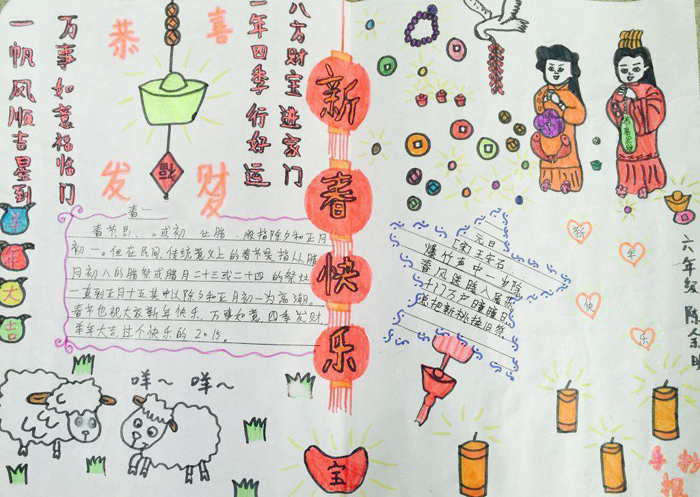 一帆风顺吉星到
万事如意福临门
恭喜
发财
一年四季行好运
八方财宝进家门
福
新春快乐
羊年大吉
春节
春节是
或初
一般指除夕和正月
初一。但在民间,传统意义上的春节是指从腊
月初八的腊祭或腊月二十三或二十四的祭灶
一直到正月十五其中以除夕和正月初一为高潮。
春节也祝大家新年快乐、万事如意、四季发财
羊年大吉过个快乐的2015.
咩~咩~
宝
元日
[宋]王安石
爆竹声中一岁除
春风送暖入屠苏
千门万户曈曈日
总把新桃换旧符。
新
年
快
乐
六年级
陈
手抄报